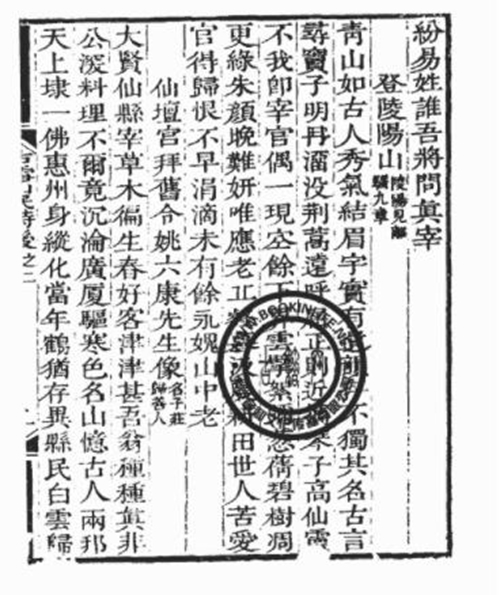 紛易姓誰吾將問眞宰
登陵陽山陵陽見離騷九章
靑山如古人秀氣結眉宇實有不獨其名古言
尋竇子明丹溜没荆蒿遠呼正則近子高仙靈
不我卽宰官偶一現空餘雲紫蒨碧樹凋
更綠朱顔晚難妍唯應老田世人苦愛
官得歸恨不早涓滴未有餘永媿山中老
仙壇宮拜舊令姚六康先生像名子莊歸善人
大賢仙縣宰草木徧生春好客津津甚吾翁種種眞非
公深料理不爾竟沉淪廣厦驅寒色名山憶古人兩邦
天上埭一佛惠州身縱化當年鶴猶存異縣民白雲歸